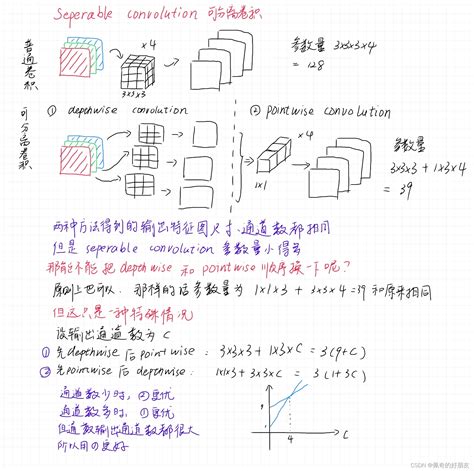 Seperable convolution 可分离卷积
普通卷积
×4
3x3x3
参数量 3x3x3x4
= 128
可分离卷积
① depthwise convolution
② pointwise convolution
×4
1x1
参数量
3x3x3 + 1x3x4
= 39
两种方法得到的输出特征图尺寸、通道数都相同
但是 seperable convolution 参数量小得多
那能不能把 depthwise 和 pointwise 顺序换一下呢?
原则上也可以, 那样的话参数量为 1x1x3 + 3x3x4 = 39 和原来相同
但这只是一种特殊情况
设输出通道数为 C
① 先depthwise 后pointwise : 3x3x3 + 1x3xC = 3(9+C)
② 先pointwise 后depthwise : 1x1x3 + 3x3xC = 3(1+3C)
通道数少时, ②更优
通道数多时, ①更优
但通常输出通道数都很大
所以用①更好
4
C
CSDN @